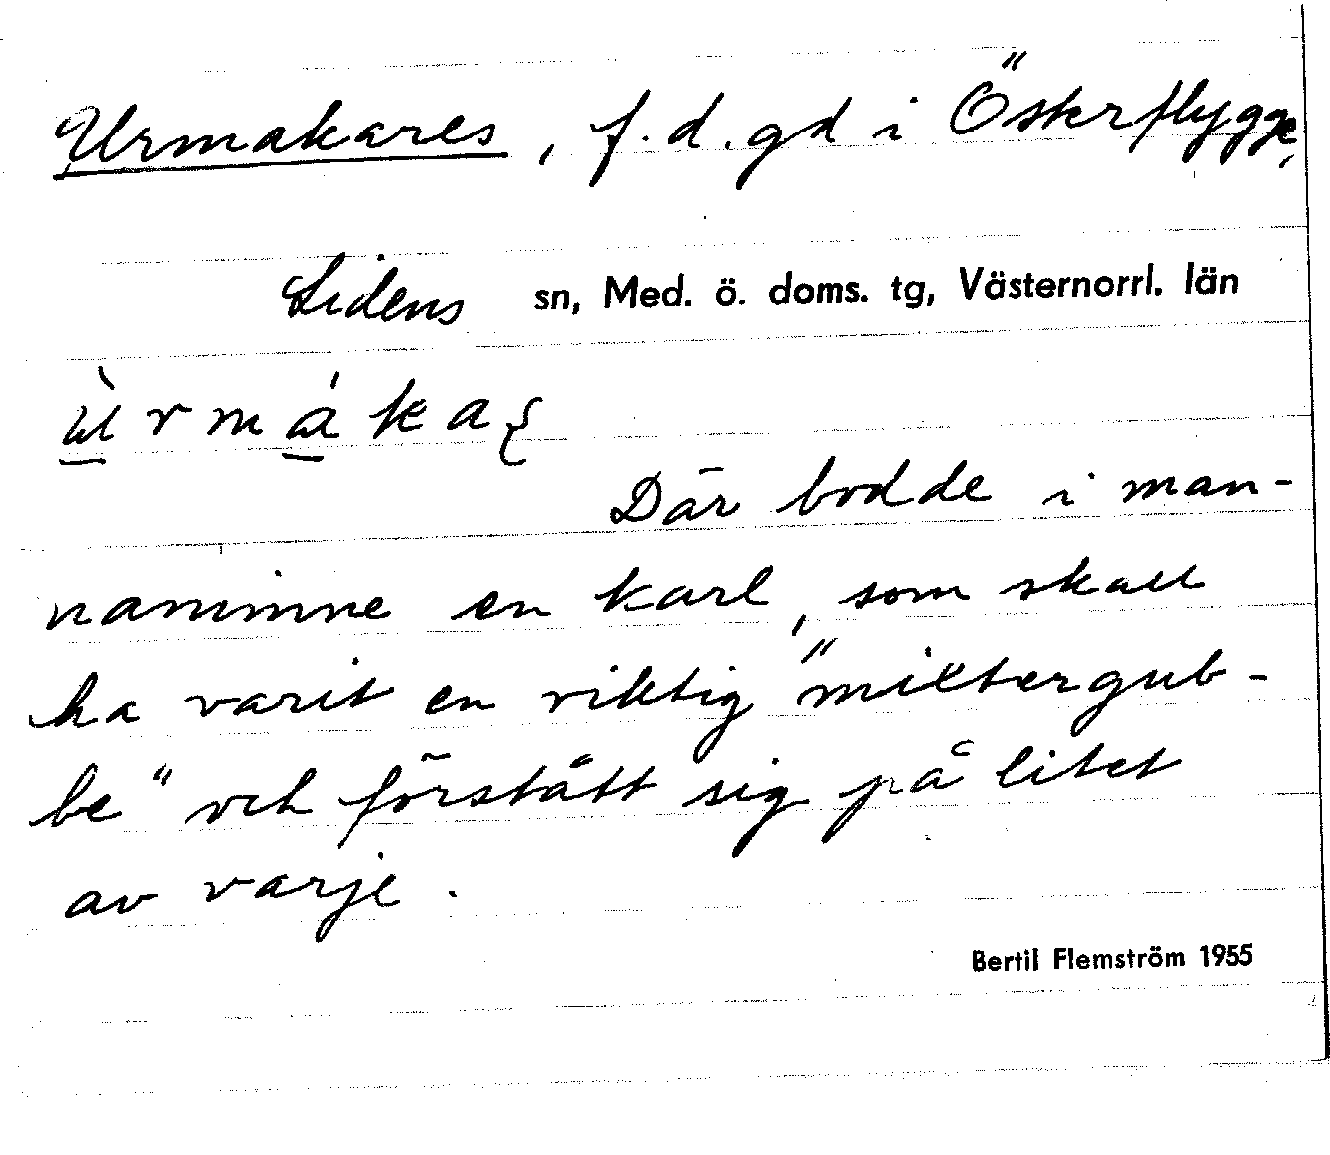 Urmakares, f.d. gd i Österflygge,
Lidens sn, Med. ö. doms. tg, Västernorrl. län
Där bodde i man-
naminne en karl, som skall
ha varit en riktig "miltergub-
be" och förstått sig på litet
av varje.
Bertil Flemström 1955